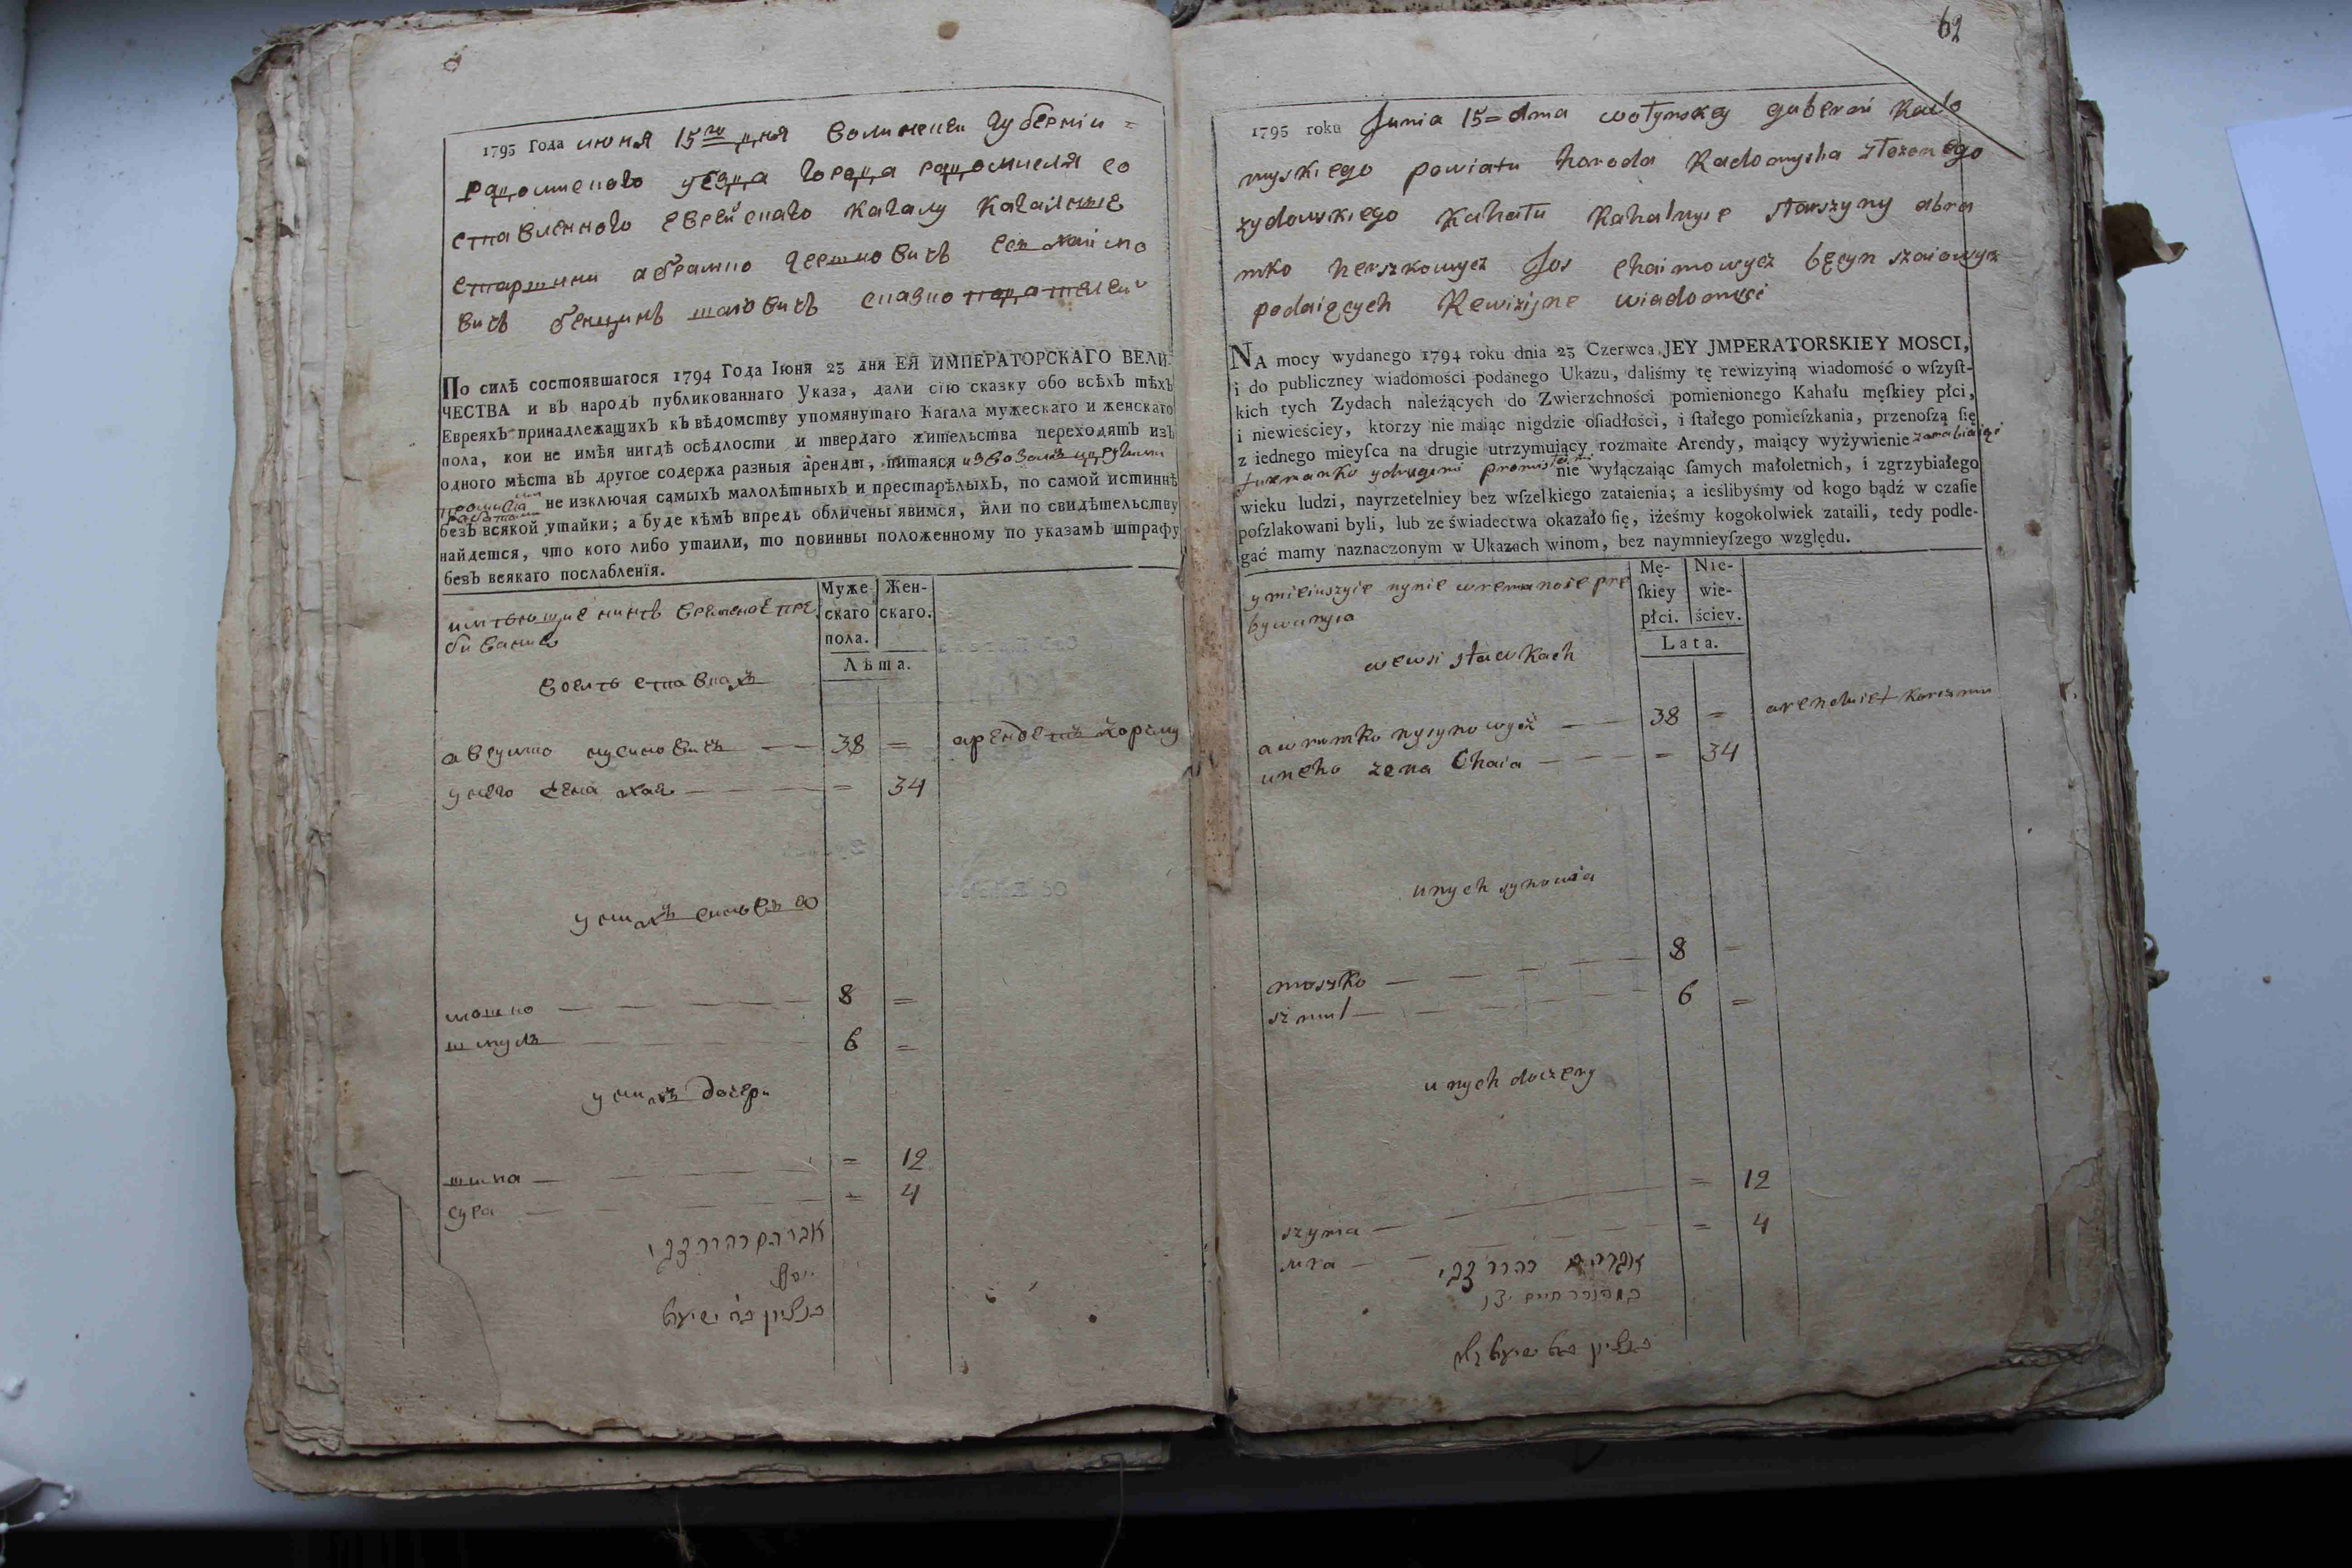 1795 Года июня 15го дня волинской губернии =
радомиского уезда города радомисля со
ставленного еврейскаго кагалу кагалние
старшини абрамко гершковичъ есъ хаимо
вичъ бенцинъ шаiовичъ
По силѣ состоявшагося 1794 Года Iюня 23 дня ЕЯ ИМПЕРАТОРСКАГО ВЕЛИ-
ЧЕСТВА и въ народъ публикованнаго Указа, дали сїю сказку обо всѣхъ тѣхъ
Евреяхъ принадлежащихъ къ вѣдомству упомянутаго Кагала мужескаго и женскаго
пола, кои не имѣя нигдѣ осѣдлости и твердаго жительства переходятъ изъ
одного мѣста въ другое содержа разныя аренды, питаяся
не изключая самыхъ малолѣтныхъ и престарѣлыхъ, по самой истиннѣ
безъ всякой утайки; а буде кѣмъ впредь обличены явимся, или по свидѣтельству
найдется, что кого либо утаили, то повинны положенному по указамъ штрафу
безъ всякаго послабленїя.
Муже-
скаго
пола.
Жен-
скаго.
Лѣта.
имѣющие нинѣ временое пре
бивание
воелѣ ставкахъ
аврумко нусиновичъ — 38 = арендетъ корчму
у него жена хая — = 34
у нихъ сыновя
мошко — 8 =
шмуль — 6 =
у нихъ дочери
шина — = 12
сура — = 4
אברהם בהרר צבי
יוסף
בנציון בה ישעיה
62
1795 roku Junia 15 = dnia wołynskey guberni Rado
myskiego powiatu horoda Radomysla złozonego
zydowskiego Kahału Kahalnyie starszyny abra
mko herszkowycz Jos chaimowycz bęcyn szaiowycz
podaiących Rewizijne wiadomości
NA mocy wydanego 1794 roku dnia 23 Czerwca JEY JMPERATORSKIEY MOSCI,
i do publiczney wiadomości podanego Ukazu, daliśmy tę rewizyiną wiadomość o wſzyſt-
kich tych Zydach należących do Zwierzchności pomienionego Kahału męſkiey płci,
i niewieściey, ktorzy nie maiąc nigdzie oſiadłości, i ſtałego pomieſzkania, przenoſzą ſię
z iednego mieyſca na drugie utrzymuiący rozmaite Arendy, maiący wyżywienie zarabiaiąc
furmanko y drugimi
nie wyłączaiąc ſamych małoletnich, i zgrzybiałego
wieku ludzi, nayrzetelniey bez wſzelkiego zataienia; a ieślibyśmy od kogo bądź w czaſie
poſzlakowani byli, lub ze świadectwa okazało ſię, iżeśmy kogokolwiek zataili, tedy podle-
gać mamy naznaczonym w Ukazach winom, bez naymnieyſzego względu.
Mę-
ſkiey
płci.
Nie-
wie-
ściey.
Lata.
ymieiuszyie nynie wremanoie pre
bywanyia
wewsi stawkach
awrumko nysynowycz — 38 = arenduiet korczmu
uneho zena Chaia — = 34
unych synowia
moszko — 8 =
szmul — 6 =
unych doczery
szyna — = 12
sura — = 4
אברהם בהרר צבי
בנציון בה ישעיה